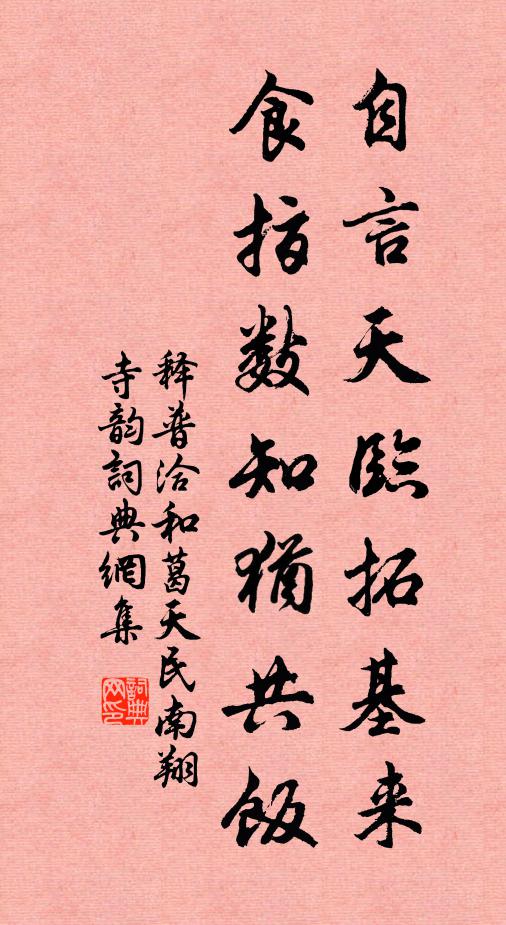 自言天临拓基来
食指数知犹共飯
释普洽和葛天民南翔
寺韵詞典網集
詞典
网印